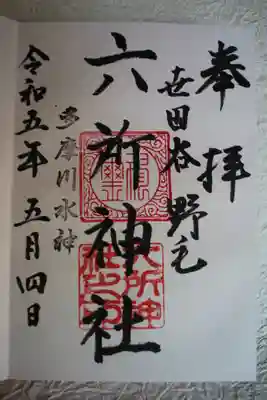 奉拝
世田谷野毛
六所神社
多摩川水神
令和五年五月四日